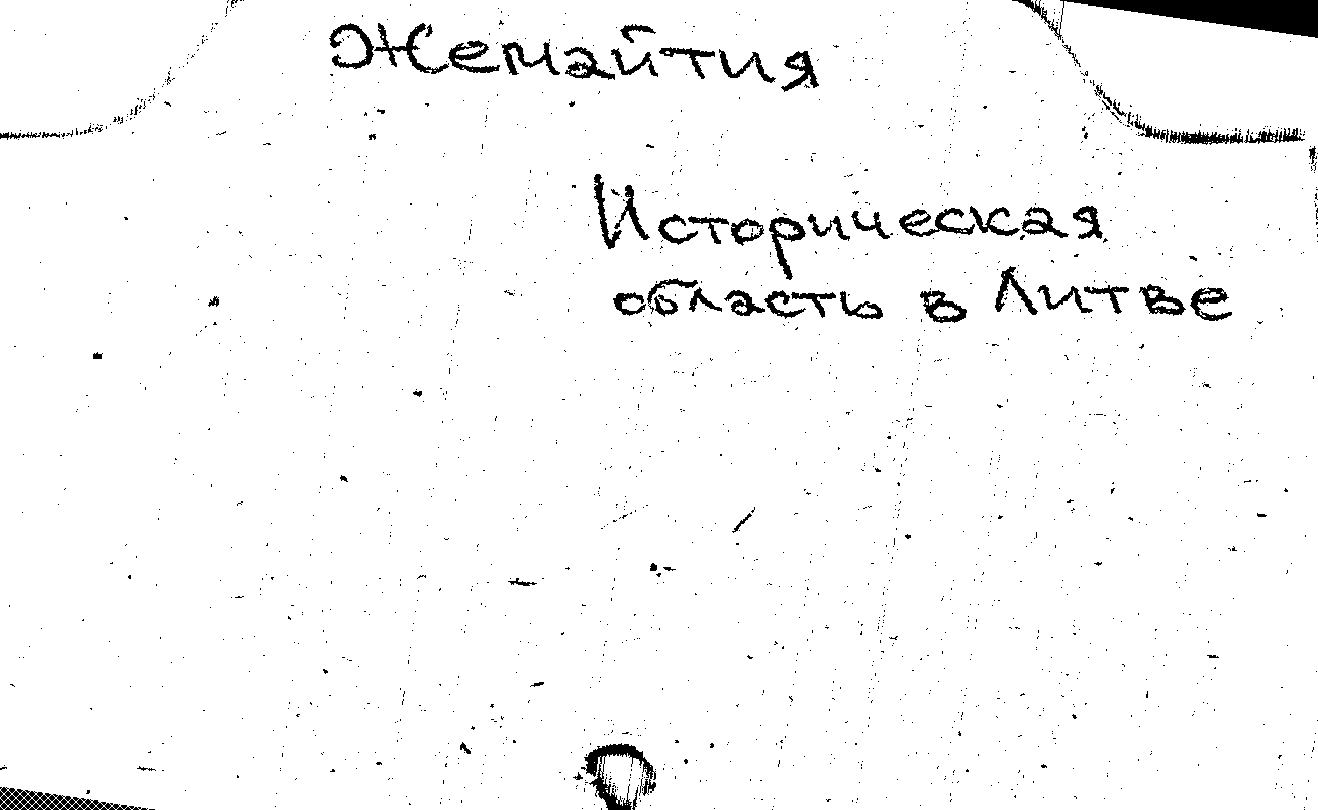 Жемайтия
Историческая
область в Литве